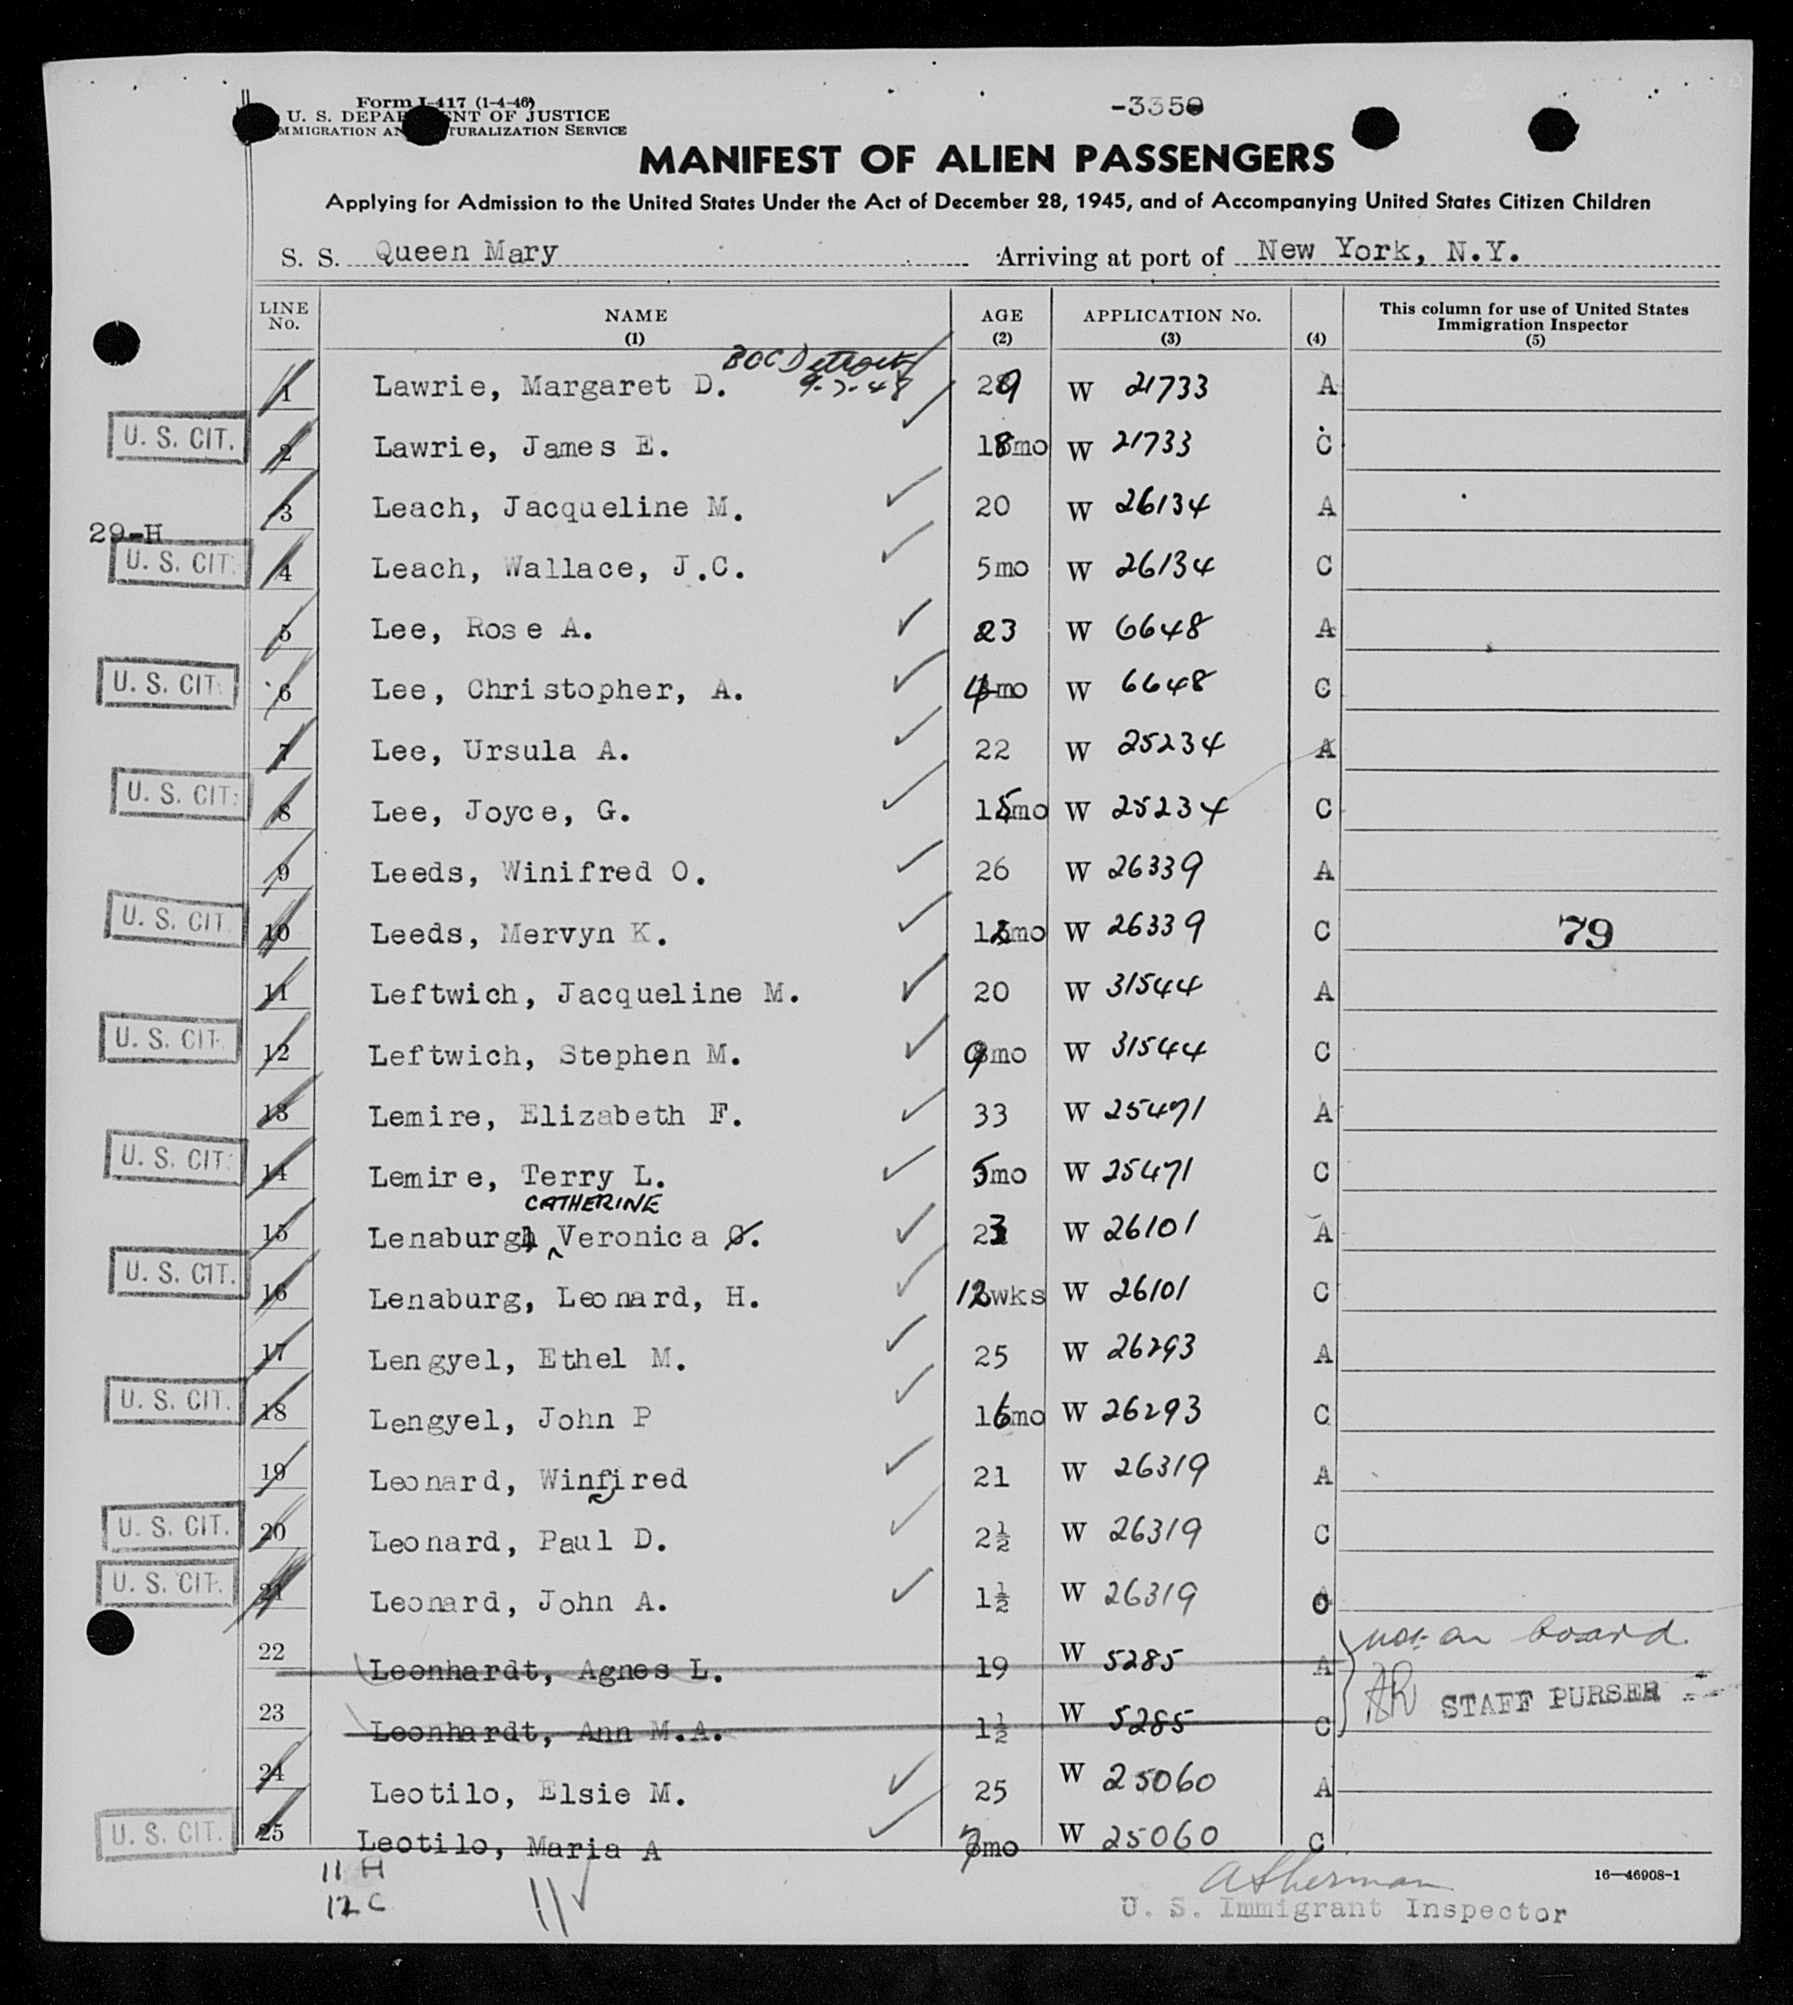 Form I-417 (1-4-46)
U. S. DEPARTMENT OF JUSTICE
IMMIGRATION AND NATURALIZATION SERVICE
-3350
MANIFEST OF ALIEN PASSENGERS
Applying for Admission to the United States Under the Act of December 28, 1945, and of Accompanying United States Citizen Children
S. S. Queen Mary Arriving at port of New York, N.Y.
LINE No. NAME (1) AGE (2) APPLICATION No. (3) (4) This column for use of United States Immigration Inspector (5)
BOC Detroit
9-7-48
1 Lawrie, Margaret D. 29 W 21733 A
U. S. CIT. 2 Lawrie, James E. 18mo W 21733 C
3 Leach, Jacqueline M. 20 W 26134 A
29-H
U. S. CIT. 4 Leach, Wallace, J.C. 5mo W 26134 C
5 Lee, Rose A. 23 W 6648 A
U. S. CIT. 6 Lee, Christopher, A. 4mo W 6648 C
7 Lee, Ursula A. 22 W 25234 A
U. S. CIT. 8 Lee, Joyce, G. 15mo W 25234 C
9 Leeds, Winifred O. 26 W 26339 A
U. S. CIT. 10 Leeds, Mervyn K. mo W 26339 C 79
11 Leftwich, Jacqueline M. 20 W 31544 A
U. S. CIT. 12 Leftwich, Stephen M. 9mo W 31544 C
13 Lemire, Elizabeth F. 33 W 25471 A
U. S. CIT. 14 Lemire, Terry L. 5mo W 25471 C
CATHERINE
15 Lenaburg, Veronica C. 23 W 26101 A
U. S. CIT. 16 Lenaburg, Leonard, H. 12wks W 26101 C
17 Lengyel, Ethel M. 25 W 26293 A
U. S. CIT. 18 Lengyel, John P 16mo W 26293 C
19 Leonard, Winfired 21 W 26319 A
U. S. CIT. 20 Leonard, Paul D. 2½ W 26319 C
U. S. CIT. 21 Leonard, John A. 1½ W 26319 C
not on board
22 Leonhardt, Agnes L. 19 W 5285 A
STAFF PURSER
23 Leonhardt, Ann M.A. 1½ W 5285 C
24 Leotilo, Elsie M. 25 W 25060 A
U. S. CIT. 25 Leotilo, Maria A 7mo W 25060 C
11 H
12 C
11
16—46908-1
A Sherman
U. S. Immigrant Inspector